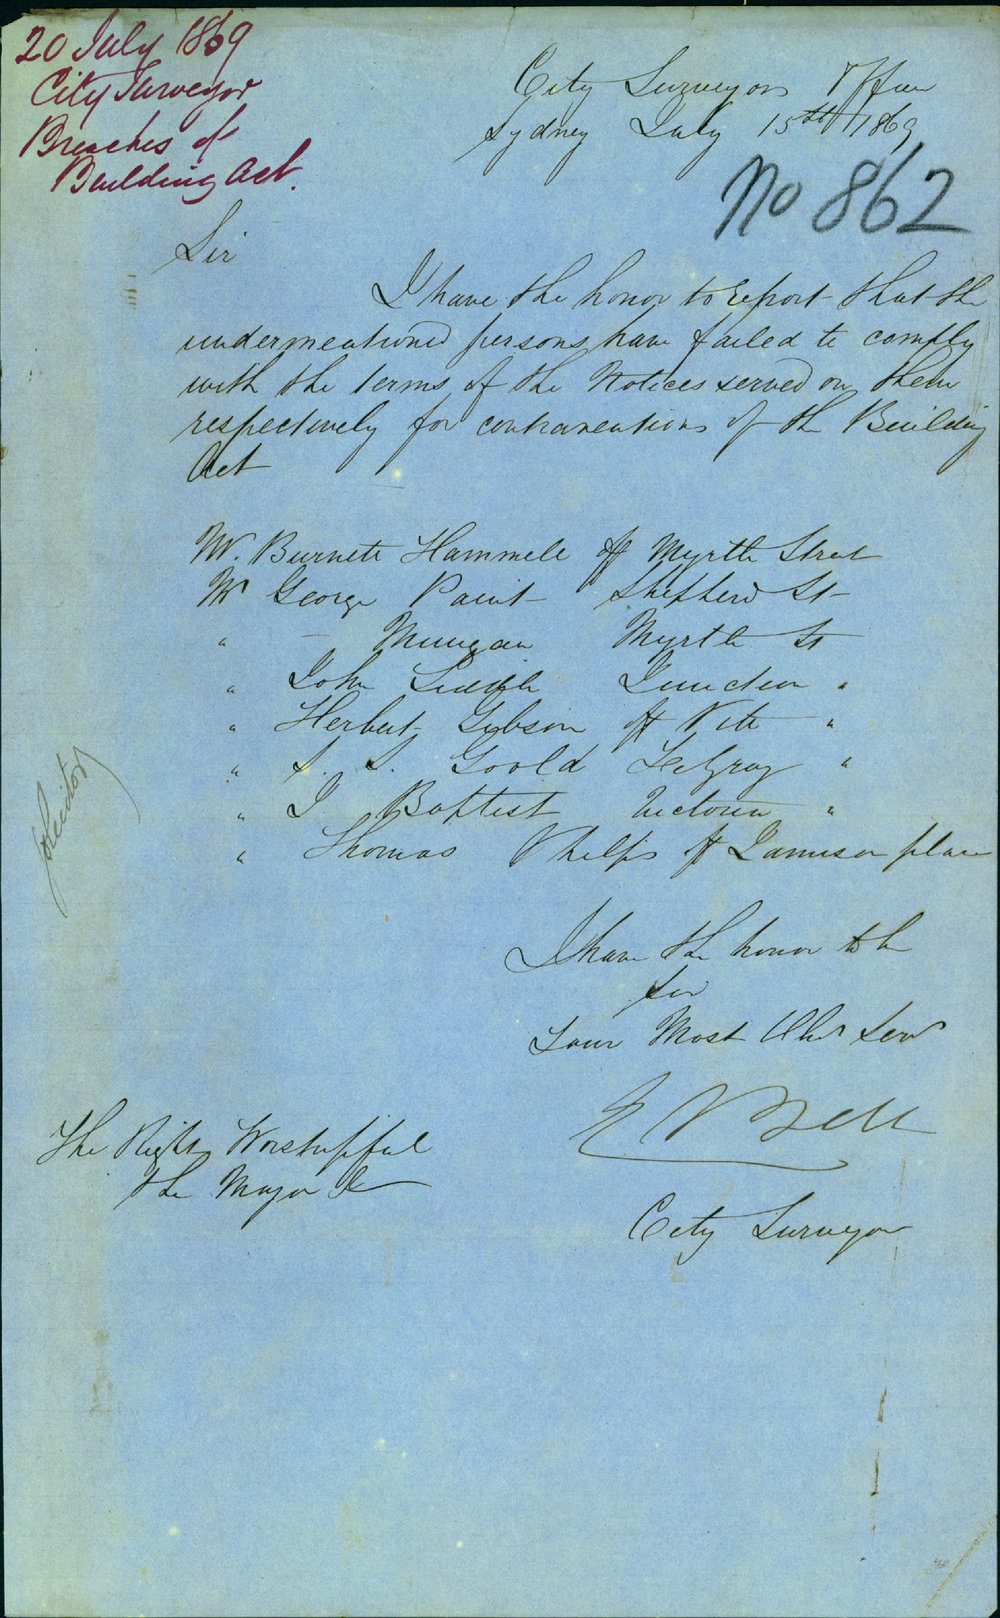 20 July 1869
City Surveyor
Breaches of
Building Act.
City Surveyors Office
Sydney July 15th 1869
No 862
Sir
I have the honor to report that the
undermentioned persons have failed to comply
with the terms of the Notices served on them
respectively for contraventions of the Building
Act
Mr. Burnett Hammell off Myrtle Street
Mr George Paint Shepherd St
" — Myrtle St
" John Junction "
" Herbert Gibson off Pitt "
" S. S. Goold "
" J Baptist Victoria "
" Thomas Phelps off Jamison place
I have the honor to be
Sir
Your Most Obt Servt
E Bell
City Surveyor
The Right Worshipful
the Mayor &c